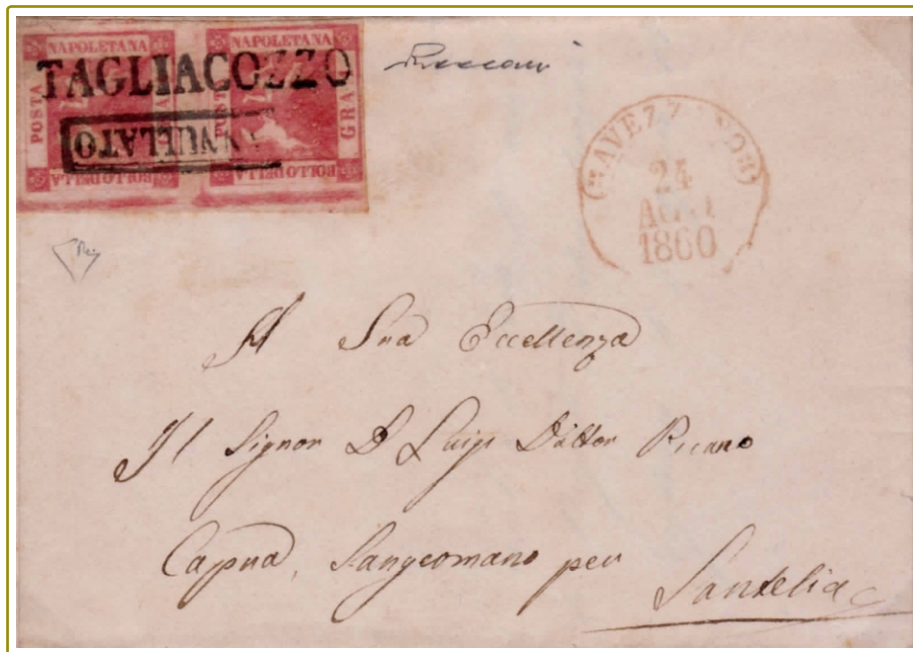 POSTA NAPOLETANA BOLLO DELLA
POSTA NAPOLETANA GRA BOLLO DELLA
TAGLIACOZZO
ANNULLATO
AVEZZANO
24
AGO
1860
A Sua Eccellenza
Il Signor D Luigi Dattor Picano
Capua, Sangeomano per
Santelia